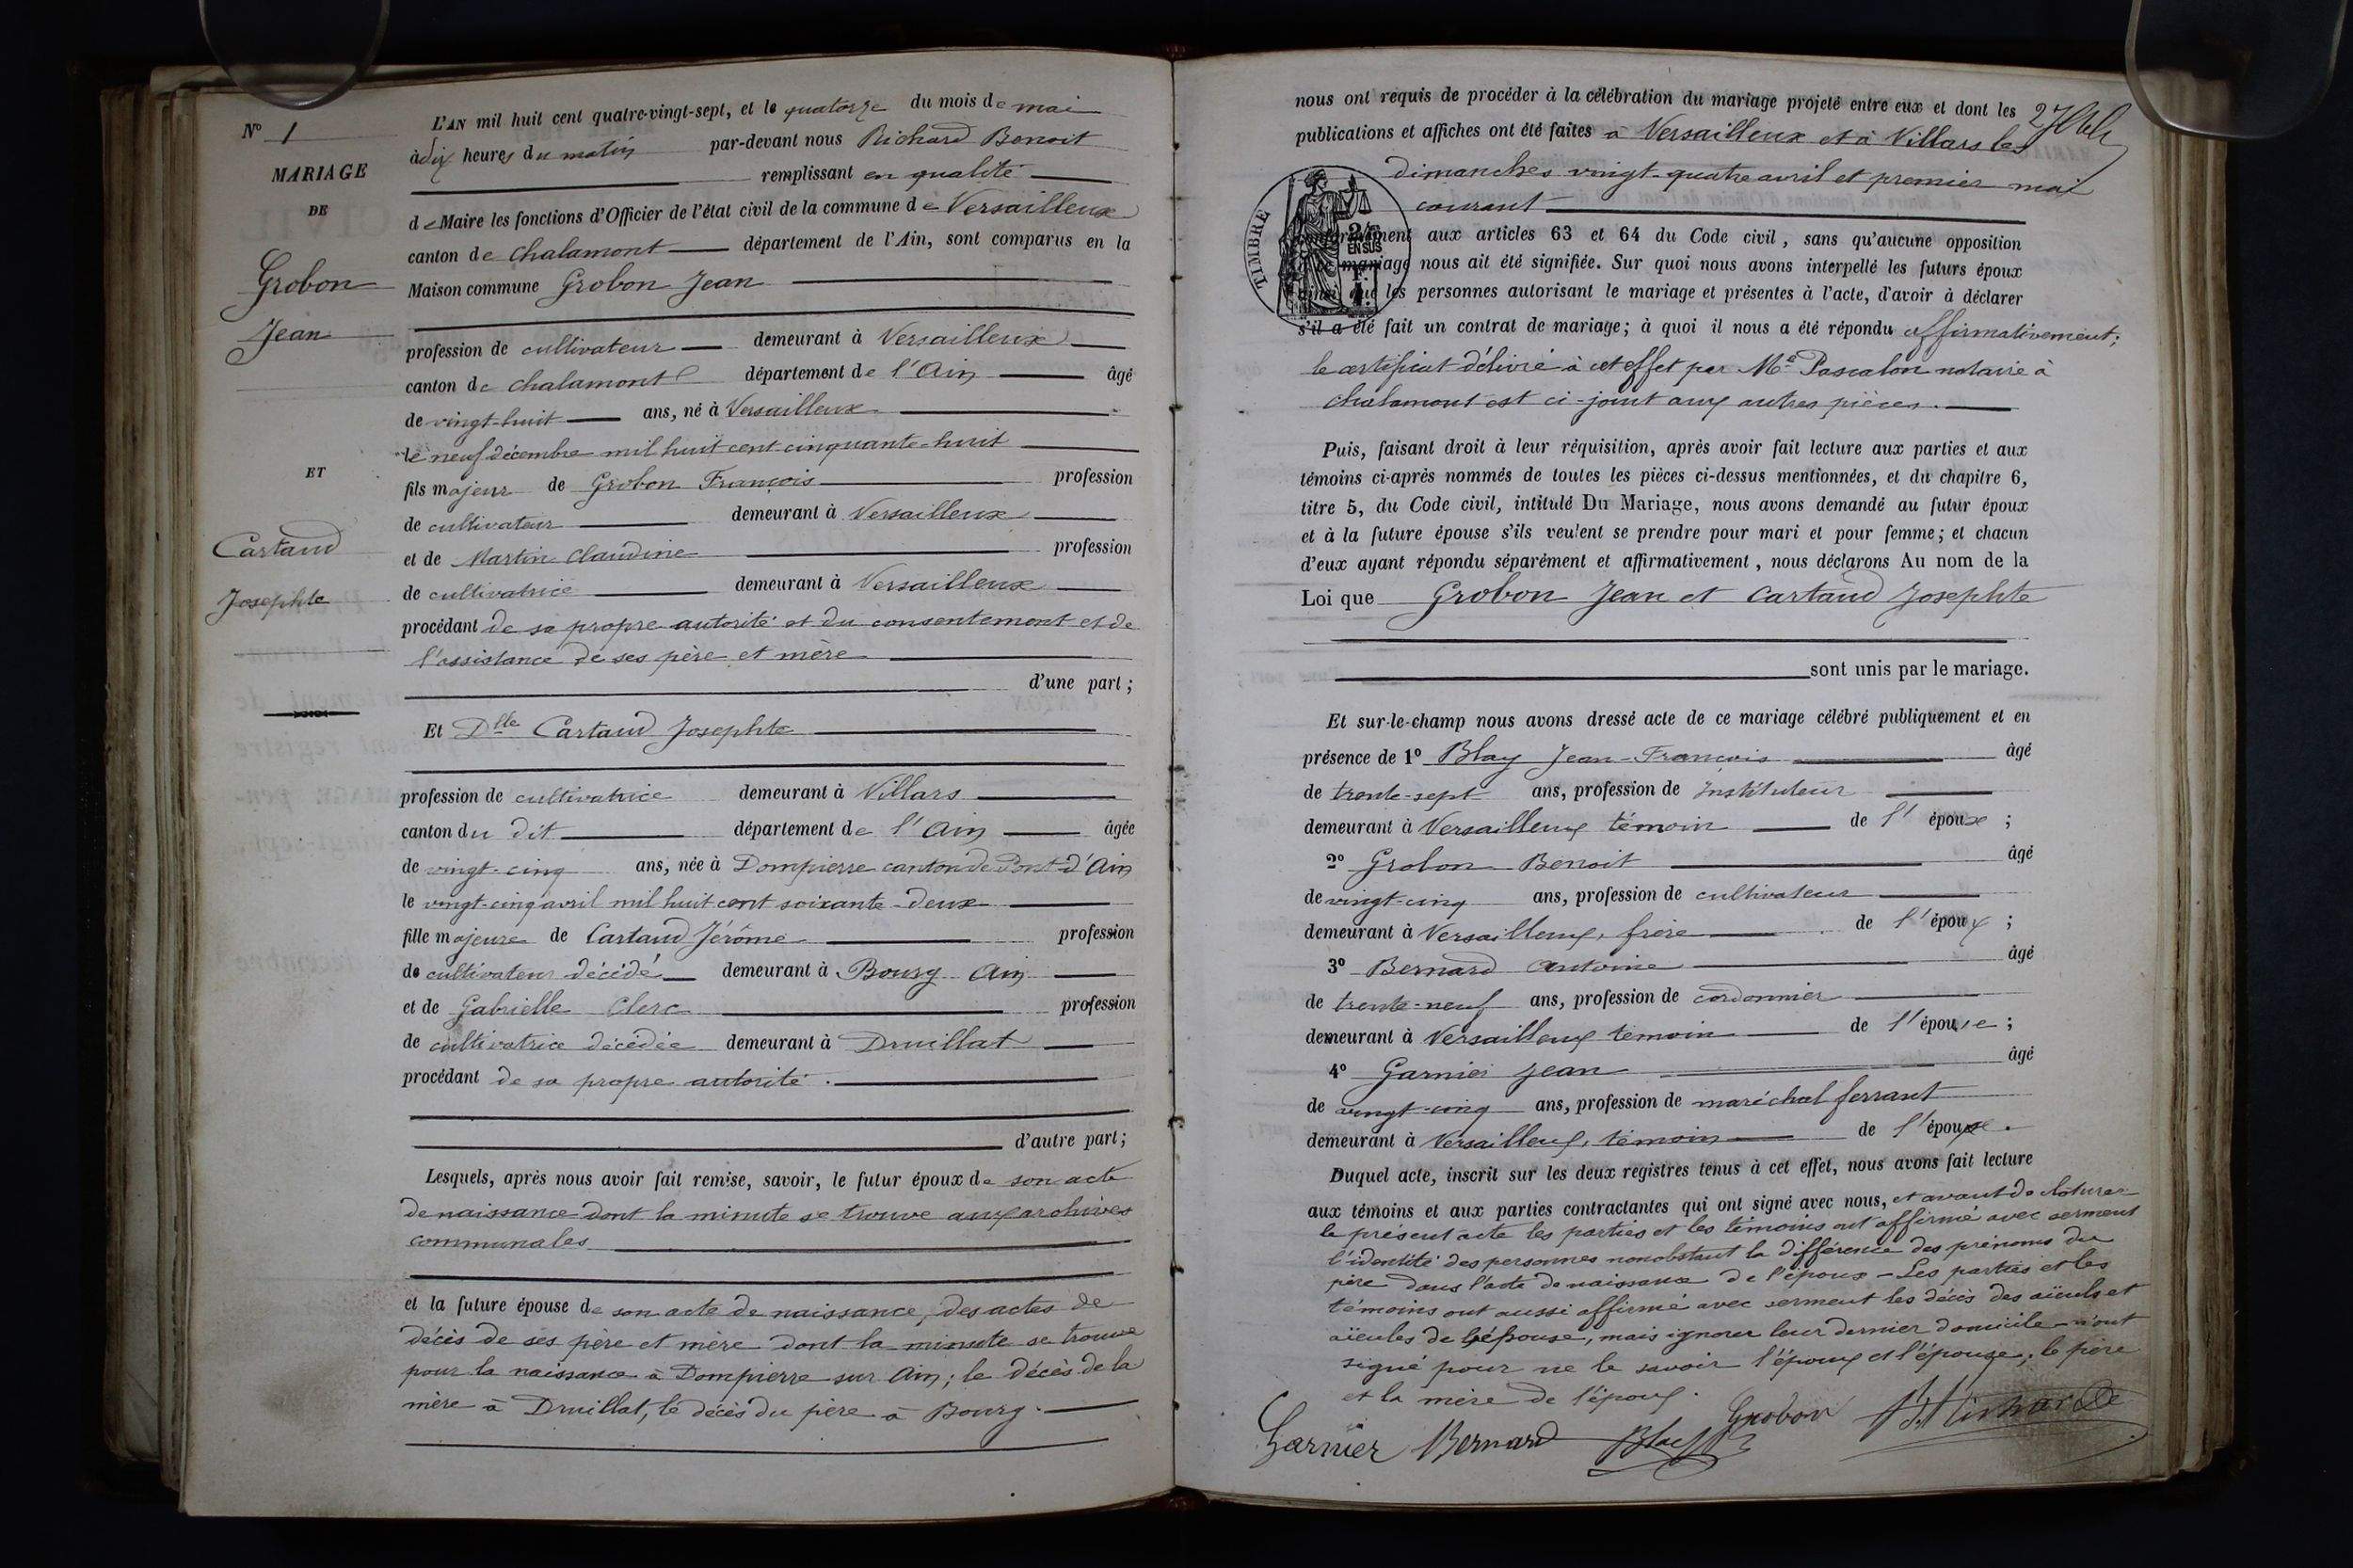 N° 1
MARIAGE
DE
Grobon
Jean
ET
Cartaud
Josephte
L'AN mil huit cent quatre-vingt-sept, et le quatorze du mois de mai
à dix heures du matin par-devant nous Richard Benoit
remplissant en qualité
de Maire les fonctions d'Officier de l'état civil de la commune de Versailleux
canton de Chalamont département de l'Ain, sont comparus en la
Maison commune Grobon Jean
profession de cultivateur demeurant à Versailleux
canton de Chalamont département de l'Ain âgé
de vingt-huit ans, né à Versailleux
le neuf décembre mil huit cent cinquante-huit
fils majeur de Grobon François profession
de cultivateur demeurant à Versailleux
et de Martin Claudine profession
de cultivatrice demeurant à Versailleux
procédant de sa propre autorité et du consentement et de
l'assistance de ses père et mère
d'une part;
Et Dlle Cartaud Josephte
profession de cultivatrice demeurant à Villars
canton du dit département de l'Ain âgée
de vingt-cinq ans, née à Dompierre canton de Pont-d'Ain
le vingt-cinq avril mil huit cent soixante-deux
fille majeure de Cartaud Jérôme profession
de cultivateur décédé demeurant à Bourg Ain
et de Gabrielle Clerc profession
de cultivatrice décédée demeurant à Druillat
procédant de sa propre autorité.
d'autre part;
Lesquels, après nous avoir fait remise, savoir, le futur époux de son acte
de naissance dont la minute se trouve aux archives
communales
et la future épouse de son acte de naissance, des actes de
décès de ses père et mère dont la minute se trouve
pour la naissance à Dompierre sur Ain; le décès de la
mère à Druillat, le décès du père à Bourg.
nous ont requis de procéder à la célébration du mariage projeté entre eux et dont les
publications et affiches ont été faites à Versailleux et à Villars les
dimanches vingt-quatre avril et premier mai
courant
TIMBRE
2/10
EN SUS
conformément aux articles 63 et 64 du Code civil, sans qu'aucune opposition
à ce mariage nous ait été signifiée. Sur quoi nous avons interpellé les futurs époux
ainsi que les personnes autorisant le mariage et présentes à l'acte, d'avoir à déclarer
s'il a été fait un contrat de mariage; à quoi il nous a été répondu affirmativement;
le certificat délivré à cet effet par Me Pascalon notaire à
Chalamont est ci-joint aux autres pièces.
Puis, faisant droit à leur réquisition, après avoir fait lecture aux parties et aux
témoins ci-après nommés de toutes les pièces ci-dessus mentionnées, et du chapitre 6,
titre 5, du Code civil, intitulé Du Mariage, nous avons demandé au futur époux
et à la future épouse s'ils veulent se prendre pour mari et pour femme; et chacun
d'eux ayant répondu séparément et affirmativement, nous déclarons Au nom de la
Loi que Grobon Jean et Cartaud Josephte
sont unis par le mariage.
Et sur-le-champ nous avons dressé acte de ce mariage célébré publiquement et en
présence de 1° Blay Jean-François âgé
de trente-sept ans, profession de instituteur
demeurant à Versailleux témoin de l'époux;
2° Grobon Benoit âgé
de vingt-cinq ans, profession de cultivateur
demeurant à Versailleux, frère de l'époux;
3° Bernard Antoine âgé
de trente-neuf ans, profession de cordonnier
demeurant à Versailleux témoin de l'épouse;
4° Garnier Jean âgé
de vingt-cinq ans, profession de maréchal ferrant
demeurant à Versailleux, témoin de l'épouse.
Duquel acte, inscrit sur les deux registres tenus à cet effet, nous avons fait lecture
aux témoins et aux parties contractantes qui ont signé avec nous, et avant de clôturer
le présent acte les parties et les témoins ont affirmé avec serment
l'identité des personnes nonobstant la différence des prénoms du
père dans l'acte de naissance de l'époux - Les parties et les
témoins ont aussi affirmé avec serment les décès des aïeuls et
aïeules de l'épouse, mais ignorer leur dernier domicile - n'ont
signé pour ne le savoir l'époux et l'épouse, le père
et la mère de l'époux.
Garnier Bernard Blay Grobon B. Richard